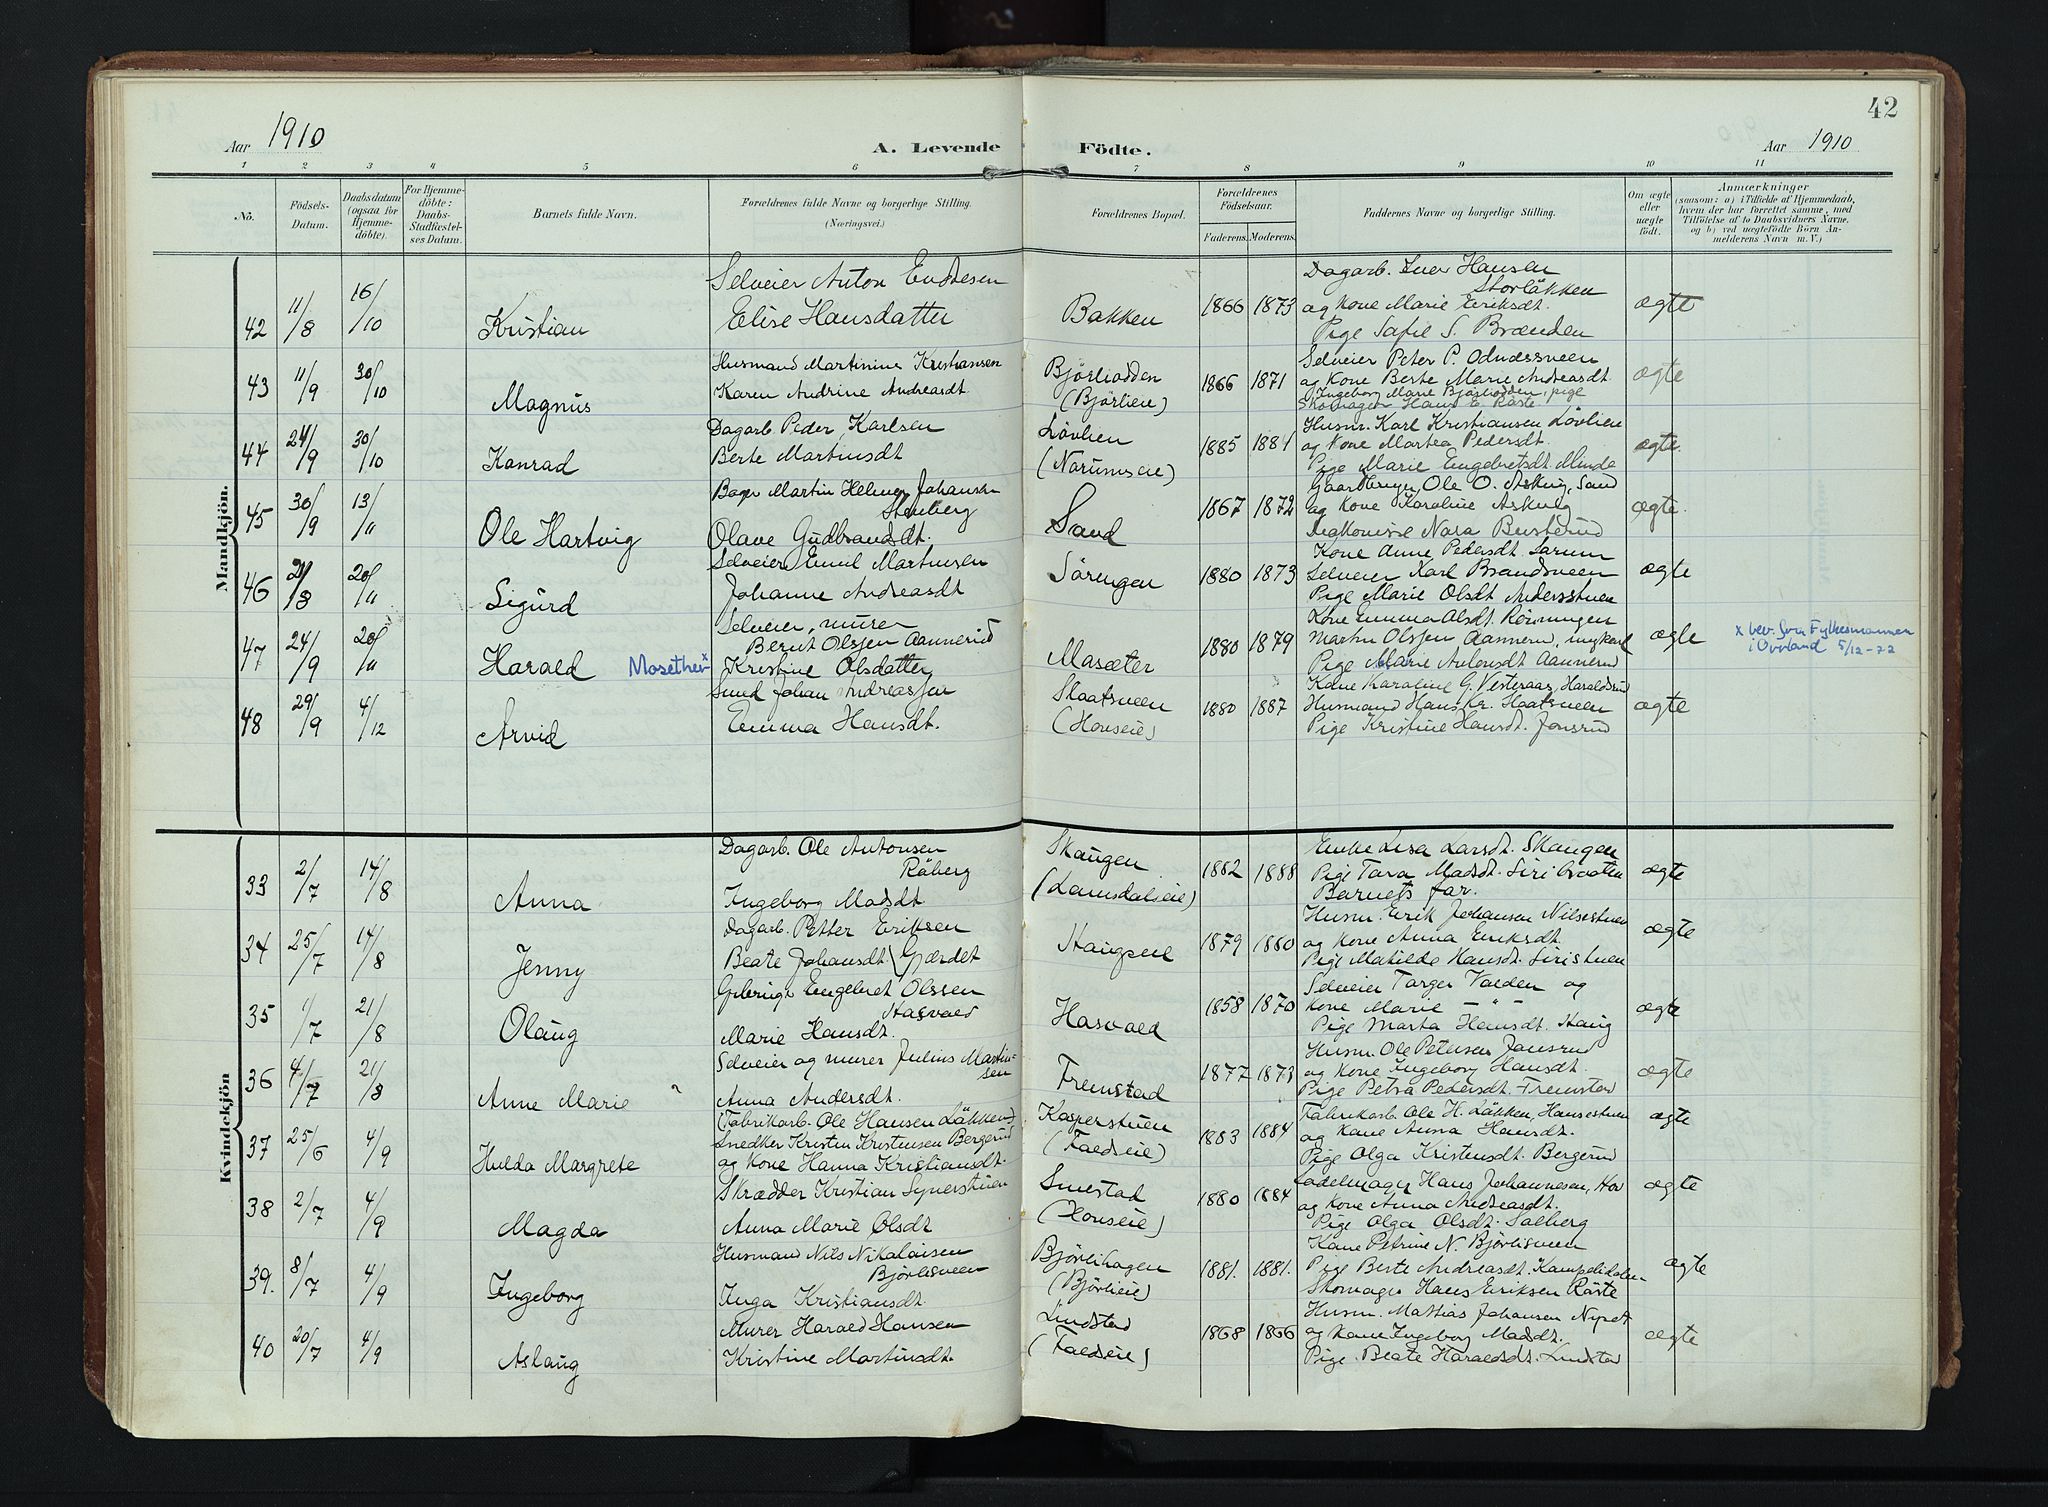 42
Aar 1910
A. Levende Födte.
Aar 1910
1 2 3 4 5 6 7 8 9 10 11
Nö.
Födsels-Datum.
Daabsdatum (ogsaa for Hjemme-döbte).
For Hjemme-döbte: Daabs-Stadfæstel-ses Datum.
Barnets fulde Navn.
Forældrenes fulde Navne og borgerlige Stilling. (Næringsvei.)
Forældrenes Bopæl.
Forældrenes Födselsaar.
Faderens. Moderens.
Faddernes Navne og borgerlige Stilling.
Om ægte eller uægte födt.
Anmærkninger
(saasom: a) i Tilfælde af Hjemmedaab, hvem der har forrettet samme, med Tilföielse af to Daabsvidners Navne, og b) ved uægtefödte Börn An-melderens Navn m. V.)
Mandkjön.
42 11/8 16/10 Kristian
Selveier Anton Endresen
Elise Hansdatter
Bakken 1866 1873
Dagarb. Iver Hansen
Storläkken
og Kone Marie Eriksdt.
Pige Safil S. Brænden
ægte
43 11/9 30/10 Magnus
Husmand Martinius Kristiansen
Karen Andrine Andreasdt.
Bjørliodden
(Bjørlieie)
1866 1871
Selveier Peter P. Odnæssveen
og Kone Berte Marie Andreasdt.
Ingeborg Marie Bjørliodden, pige
Skomager Hans E. Røste
ægte
44 24/9 30/10 Konrad
Dagarb. Peder Karlsen
Berte Martinsdt
Lövlien
(Narumseie)
1885 1884
Husm. Karl Kristiansen Lövlien
og Kone Martea Pedersdt.
Pige Marie Engebretsdt. Minde
ægte.
45 30/9 13/11 Ole Hartvig
Bager Martin Helmer Johansen
Stenberg
Olave Gudbrandsdt.
Sand
1867 1872
Gaardbruger Ole O. Askvig, Sand
og Kone Karoline Askvig
Diakonisse Nora Busterud
ægte.
46 21/8 20/11 Sigurd
Selveier Emil Martinsen
Johanne Andreasdt
Sörengen
1880 1873
Kone Anne Pedersdt. Sørum
Selveier Karl Brandsveen
Pige Marie Olsdt Andersstuen
ægte
47 24/9 20/11 Harald Mosether x
Selveier, murer
Bernt Olssen Aannerud
Kristine Olsdatter
Masæter
1880 1879
Kone Emma Olsdt. Rönningen
Martin Olssen Aannerud, ungkarl
Pige Marie Antonsdt. Aannerud
ægte
x bev. fra Fylkesmannen
i Oppland 5/12-72
48 29/9 4/12 Arvid
Smed Johan Andreassen
Emma Hansdt.
Skaatsveen
(Hovseie)
1880 1887
Kone Karoline G. Vesteraas, Haraldsrud
Husmand Hans Kr. Skaatsveen
Pige Kristine Hansdt. Jonsrud
ægte
Kvindekjön
33 2/7 14/8 Anna
Dagarb. Ole Antonsen
Råberg
Ingeborg Madsdt.
Skaugen
(Lomsdalseie)
1882 1888
Enke Lisa Larsdt. Skaugen
Pige Tara Madsdt. Siri Braaten
Barnets far.
ægte
34 25/7 14/8 Jenny
Dagarb. Petter Eriksen
Beate Johansdt. Gjærdet
Haugseie
1879 1880
Husm. Erik Johansen Nilsestuen
og Kone Anna Eriksdt.
Pige Matilde Hansdt. Siristuen
ægte
35 1/7 21/8 Olaug
Gbrugr Engebret Olssen
Hasvold
Marie Hansdt.
Hasvold
1858 1870
Selveier Targer Volden og
Kone Marie — " —
Pige Marta Hansdt. Haug
ægte
36 4/7 21/8 Anne Marie
Selveier og murer Julius Martin-
sen
Anna Andersdt.
Fremstad
1877 1873
Husm. Ole Petersen Jonsrud
og Kone Ingeborg Hansdt.
Pige Petra Pedersdt. Fremstad
ægte
37 25/6 4/9 Hulda Margrete
(Fabrikarb. Ole Hansen Läkken)
Snedker Kristen Kristensen Bergerud
og Kone Hanna Kristiansdt.
Kasperstuen
(Faldseie)
1883 1884
Fabrikarb. Ole H. Läkken, Hansestuen
og Kone Anna Hansdt.
Pige Olga Kristensdt. Bergerud
ægte
38 2/7 4/9 Magda
Skrædder Kristian Synerstuen
Anna Marie Olsdt
Smestad
(Hovseie)
1880 1884
Sadelmager Hans Johannesen, Hov
og Kone Anna Andreasdt.
Pige Olga Olsdt. Solberg
ægte
39. 8/7 4/9 Ingeborg
Husmand Nils Nikolaisen
Bjørlisveen
Inga Kristiansdt.
Bjørlihagen
(Bjørlieie)
1881. 1881.
Kone Petrine N. Bjørlisveen
Pige Berte Andreasdt. Kampelidalen
Skomager Hans Eriksen Röste
ægte
40 20/7 4/9 Aslaug
Murer Harald Hansen
Kristine Martinsdt.
Lindstad
(Faldseie)
1868 1866
Husm. Mattias Johansen Nyødt
og Kone Ingeborg Madsdt.
Pige. Beate Haraldsdt. Lindstad
ægte